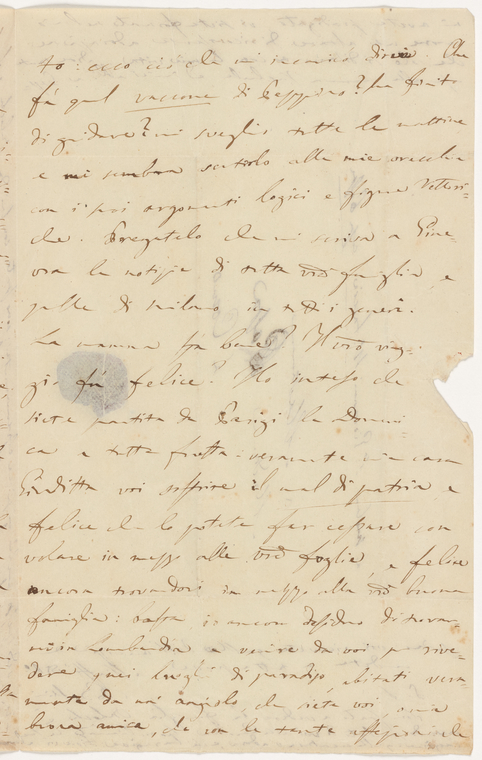 to: ecco ciò che mi incomincio dire. Che
fà quel vaccone di Peppino? ha finito
di gridare? mi sveglio tutte le mattine
e mi sembra sentirlo alle mie orecchie
con i suoi argomenti logici e figure
che. Pregatelo che mi scriva a Gine-
vra le notizie di tutta vrā famiglia, e
quelle di Milano in tutti i generi.
La mamma sta bene? Il vrō viag-
gio fù felice? Ho inteso che
siete partita da Parigi la domeni
ca a tutta fretta: veramente mia cara
Giuditta voi soffrite il mal di patria e
felice che lo potete far cessare con
volare in mezzo alle vrē foglie, e felice
ancora trovandovi in mezzo alla vrā buona
famiglia: basta io ancora desidero di trovar
mi in Lombardia e venire da voi per rive-
dere quei luoghi di paradiso, abitati vera-
mente da un' angiolo, che siete voi, mia
buona amica, che con le tante affezioni che